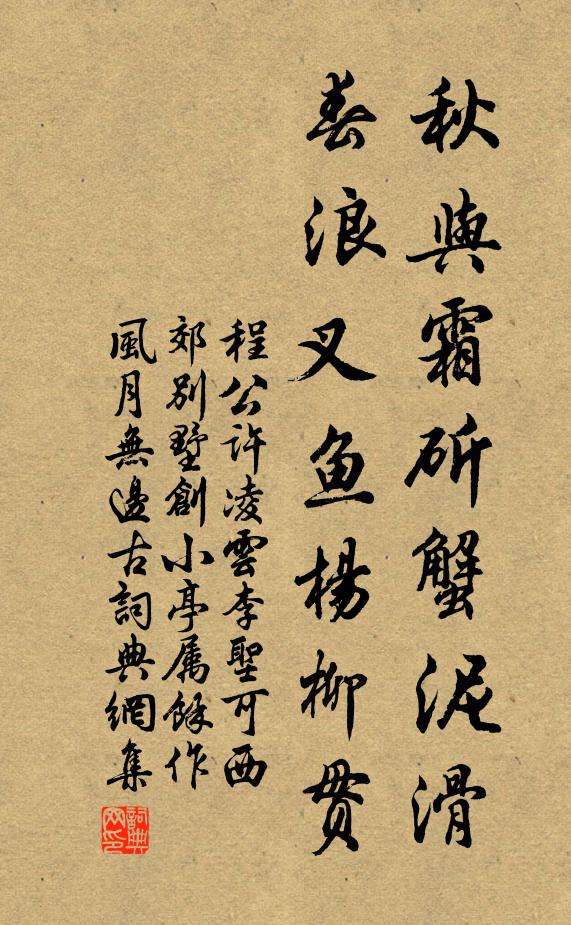 秋與霜斫蟹泥滑
春浪叉魚楊柳貫
程公許凌雲李聖可西
郊別墅創小亭屬餘作
風月無邊古詞典網集
詞典網印